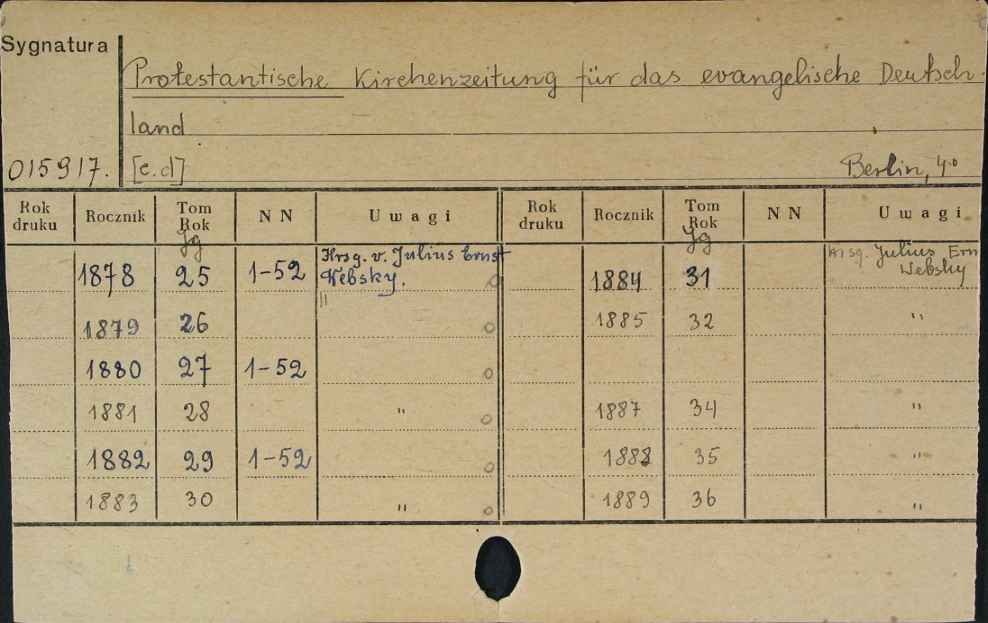 Sygnatura
Protestantische Kirchenzeitung für das evangelische Deutsch-
land
015917. [c.d] Berlin, 4°
Rok druku Rocznik Tom Rok NN Uwagi Rok druku Rocznik Tom Rok NN Uwagi
Jg Jg
1878 25 1-52 Hrsg. v. Julius Ernst Websky. 1884 31 hrsg. Julius Ern Websky
1879 26 " 1885 32 "
1880 27 1-52
1881 28 " 1887 34 "
1882 29 1-52 1888 35 "
1883 30 " 1889 36 "